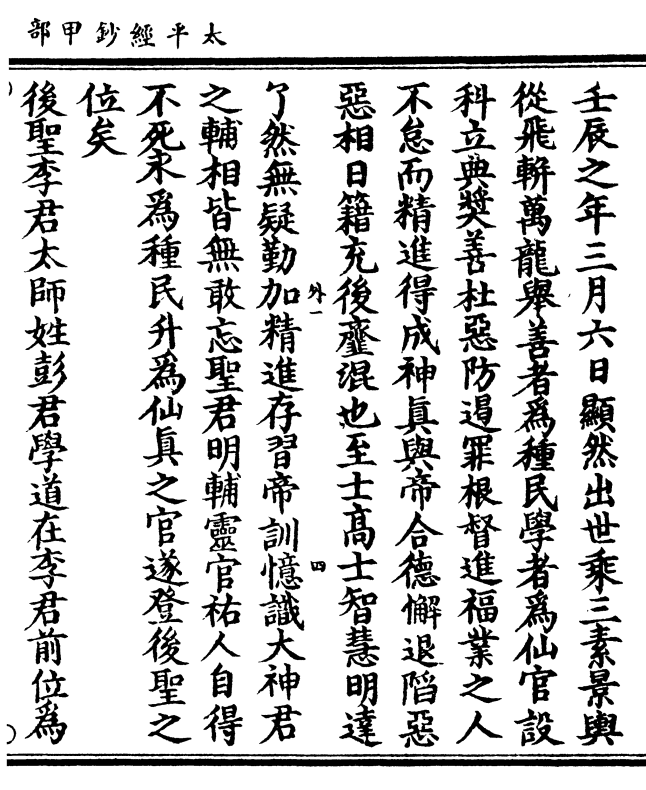 太平經鈔甲部
壬辰之年三月六日顯然出世乘三素景輿
從飛軿萬龍舉善者爲種民學者爲仙官設
科立典獎善杜惡防遏罪根督進福業之人
不怠而精進得成神眞與帝合德懈退陷惡
惡相日籍充後齏混也至士高士智慧明達
了然無疑勤加精進存習帝訓憶識大神君
外一
四
之輔相皆無敢忘聖君明輔靈官祐人自得
不死永爲種民升爲仙眞之官遂登後聖之
位矣
後聖李君太師姓彭君學道在李君前位爲